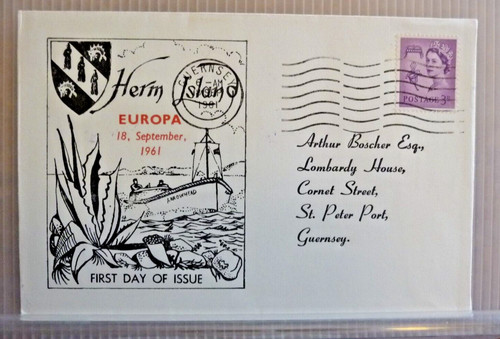 Herm Island
EUROPA
18, September,
1961
FIRST DAY OF ISSUE
GUERNSEY
AM
1961
POSTAGE 3D
Arthur Boscher Esq.,
Lombardy House,
Cornet Street,
St. Peter Port,
Guernsey.